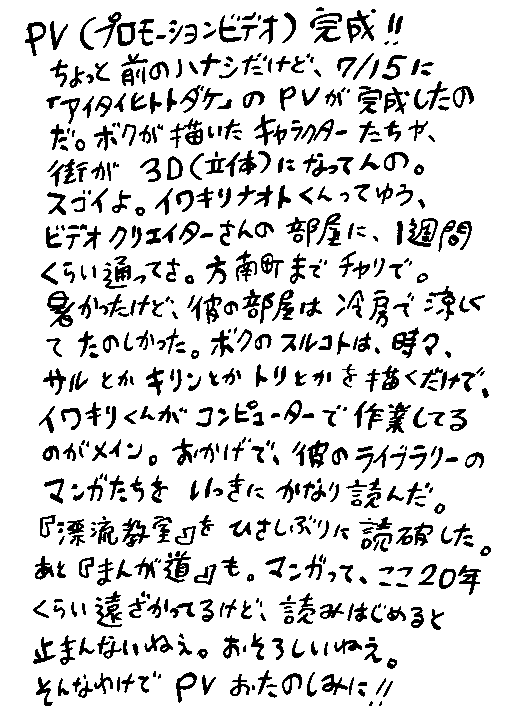 PV(プロモーションビデオ)完成!!
ちょっと前のハナシだけど、7/15に
「アイタイヒトトダケ」のPVが完成したの
だ。ボクが描いたキャラクターたちや、
街が3D(立体)になってんの。
スゴイよ。イワキリナオトくんってゆう、
ビデオクリエイターさんの部屋に、1週間
くらい通ってさ。方南町までチャリで。
暑かったけど、彼の部屋は冷房で涼しく
てたのしかった。ボクのスルコトは、時々、
サルとかキリンとかトリとかを描くだけで、
イワキリくんがコンピューターで作業してる
のがメイン。おかげで、彼のライブラリーの
マンガたちをいっきにかなり読んだ。
『漂流教室』をひさしぶりに読破した。
あと『まんが道』も。マンガって、ここ20年
くらい遠ざかってるけど、読みはじめると
止まんないねぇ。おそろしいねぇ。
そんなわけでPVおたのしみに!!